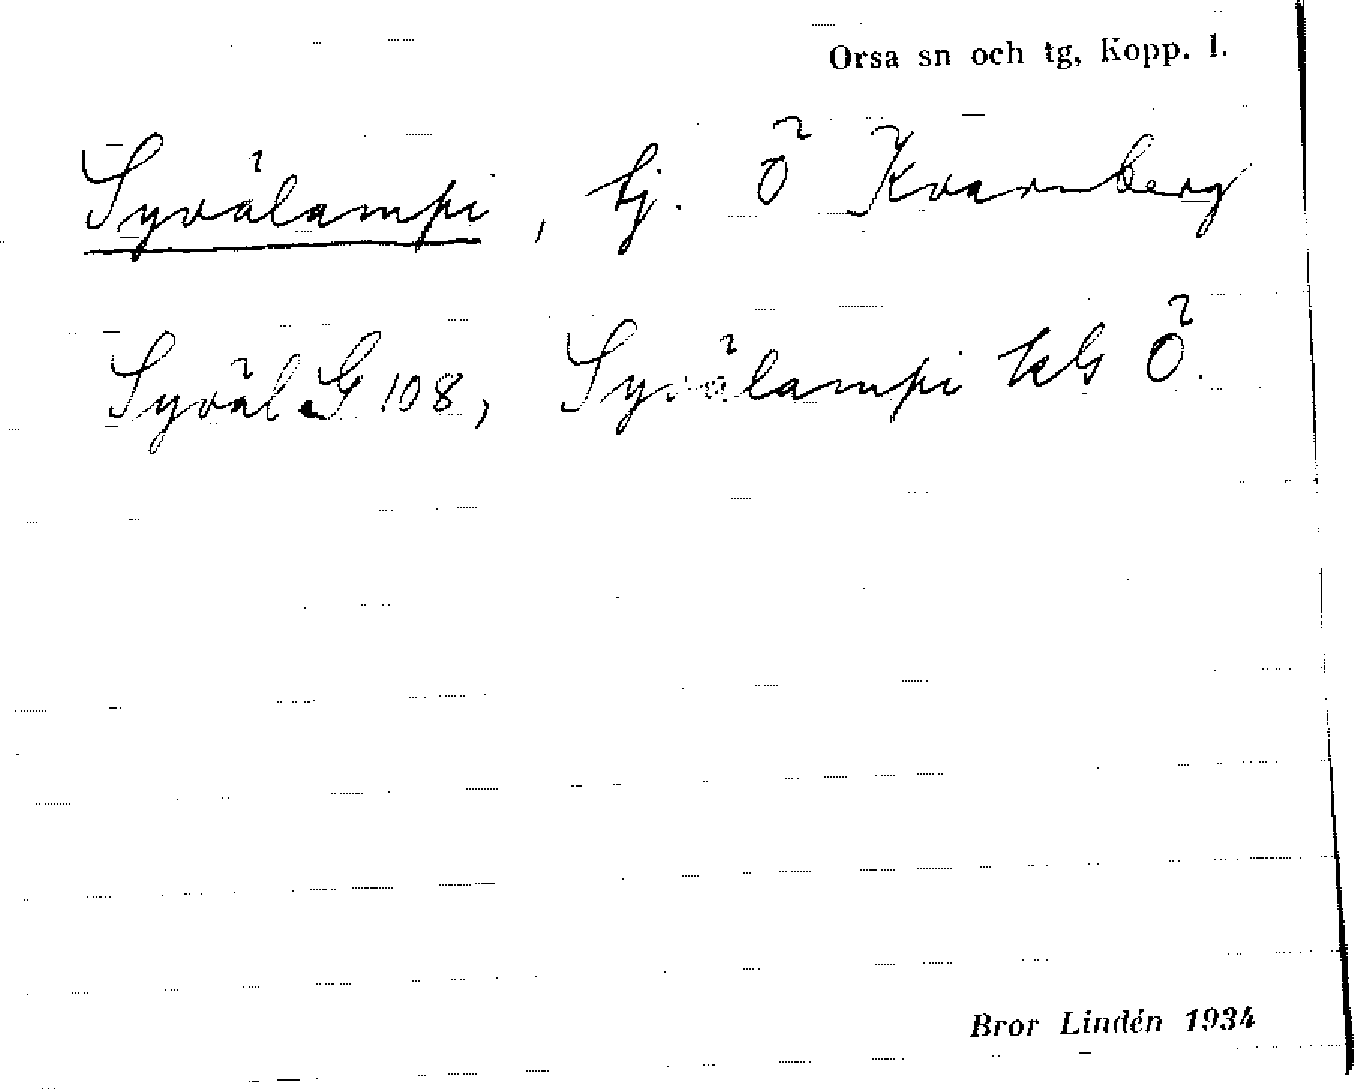 Orsa sn och tg, Kopp. l.
Syvälampi, tj. Ö Kvarnberg
Syväl G 108, Syvälampi kls Ö.
Bror Lindén 1934